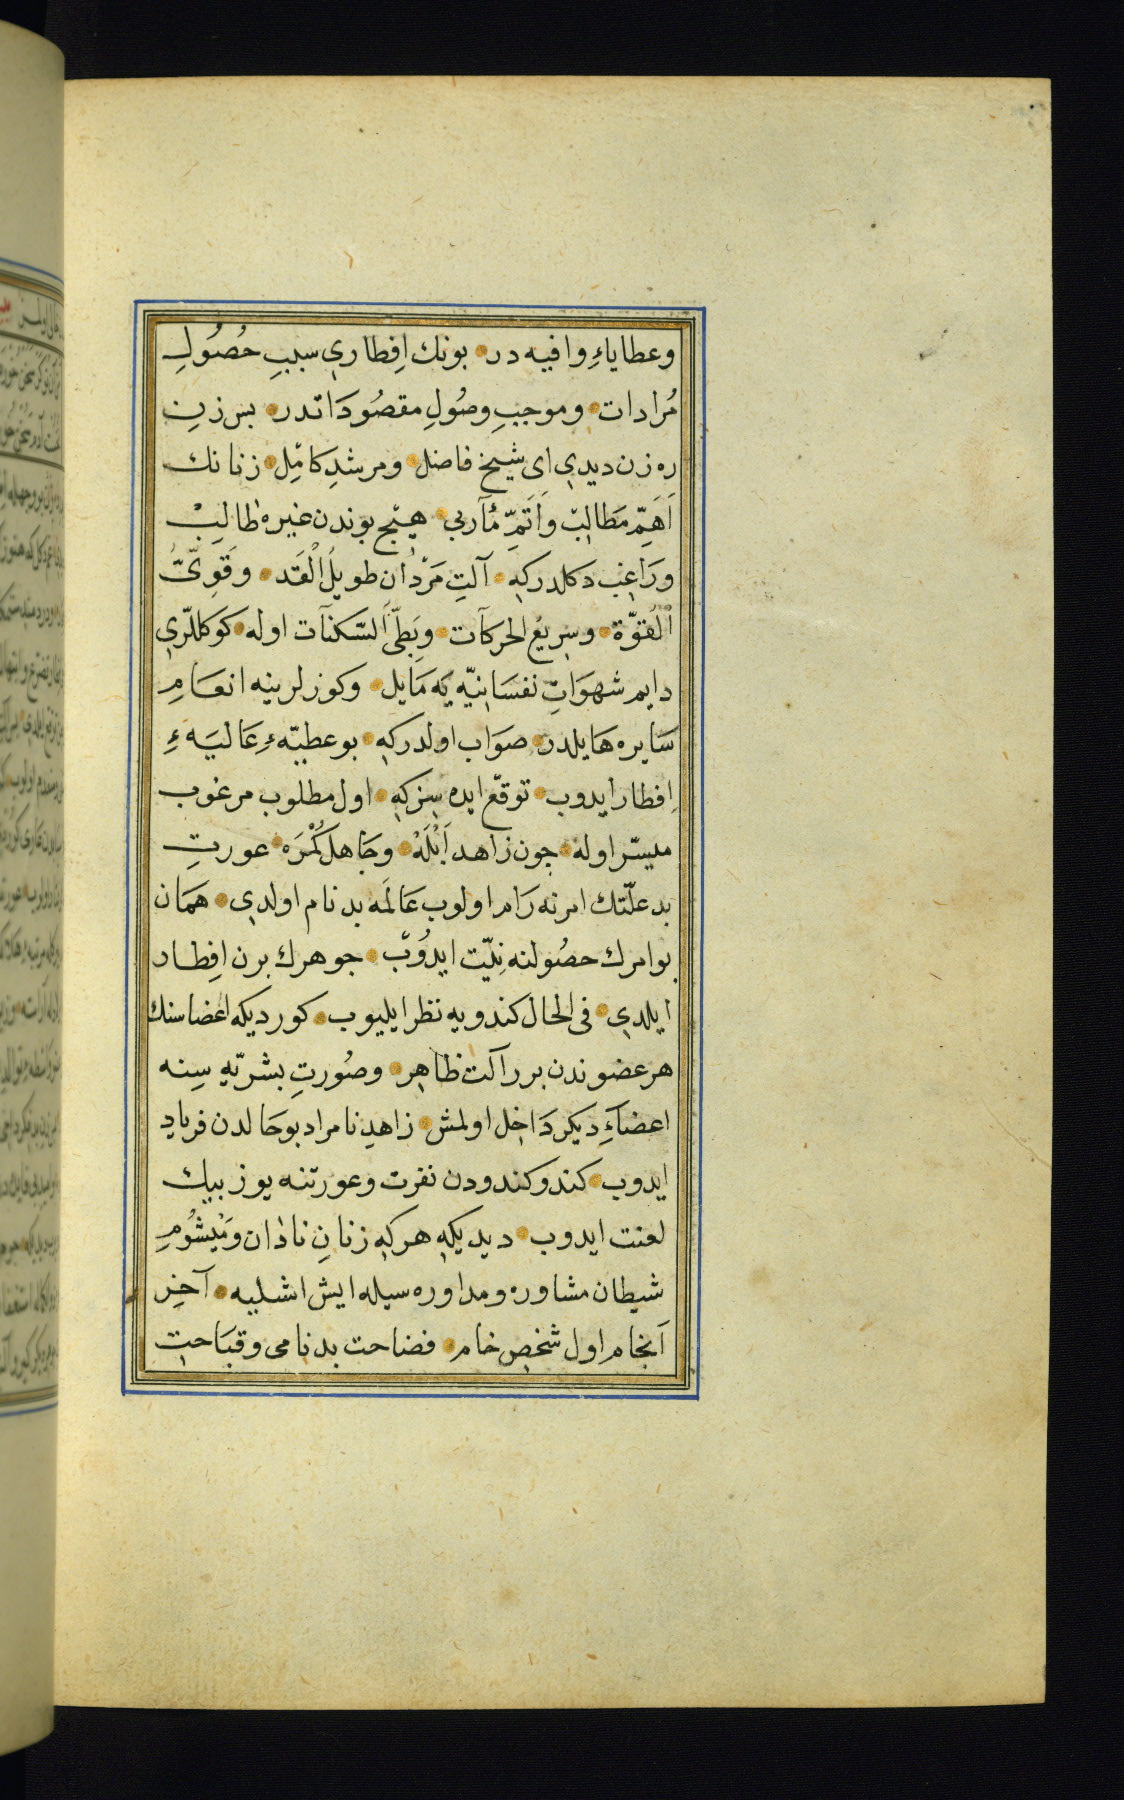 وعطایاءِ وافیه در بونك اِفطاری سببِ حُصُولِ
مُرادات وموجبِ وصُولِ مقصُودَاتدر بس زنِ
ره زن دیدی ای شیخ فاضل ومرشدِ کامِل زنانك
اَهَمِّ مَطالِبی وَاَتَمِّ مٔاربی هیچ بوندن غیره طالِبْ
ورَاغِب دکلدرکه آلتِ مَرْدان طویلُ الْقَد وقَوِیُّ
الْقوّة وسریعُ الحرکآت وبَطیُّ السّکنآت اوله کوکللّری
دایم شهوَاتِ نفسَانِیّه یَه مَایل وکوزلرینه انعَامِ
سَایره هَایلدر صوَاب اولدرکه بو عطیّهءِ عَالیَهءِ
اِفطار ایدوب توقّع ایده سِزکه اول مطلوب مرغوب
میسّر اوله جون زاهد اَبْلَهْ وجَاهل کُمْرَه عورتِ
بدعلّتك امرنه رَام اولوب عَالَمَه بدنام اولدی همَان
بوامرك حصُولنه نِیّت ایدُوبْ جوهرك برن اِفِطار
ایلدی فی الحال کندویه نظر ایلیوب کوردیکه اعضاسنك
هر عضوندن برر آلت ظاهِر وصُورتِ بشریّه سِنه
اعضآءِ دیکر دَاخِل اولمش زاهدِ نامراد بو حَالدن فریاد
ایدوب کندو کندودن نفرت وعورتنه یوز بیك
لعنت ایدوب دیدیکهِ هرکهِ زنانِ نادَان ومَیْشُومِ
شیطان مشاوره ومداوره سیله ایش اشلیه آخِر
اَنجام اول شخصِ خام فضاحت بدنامی وقبَاحتِ